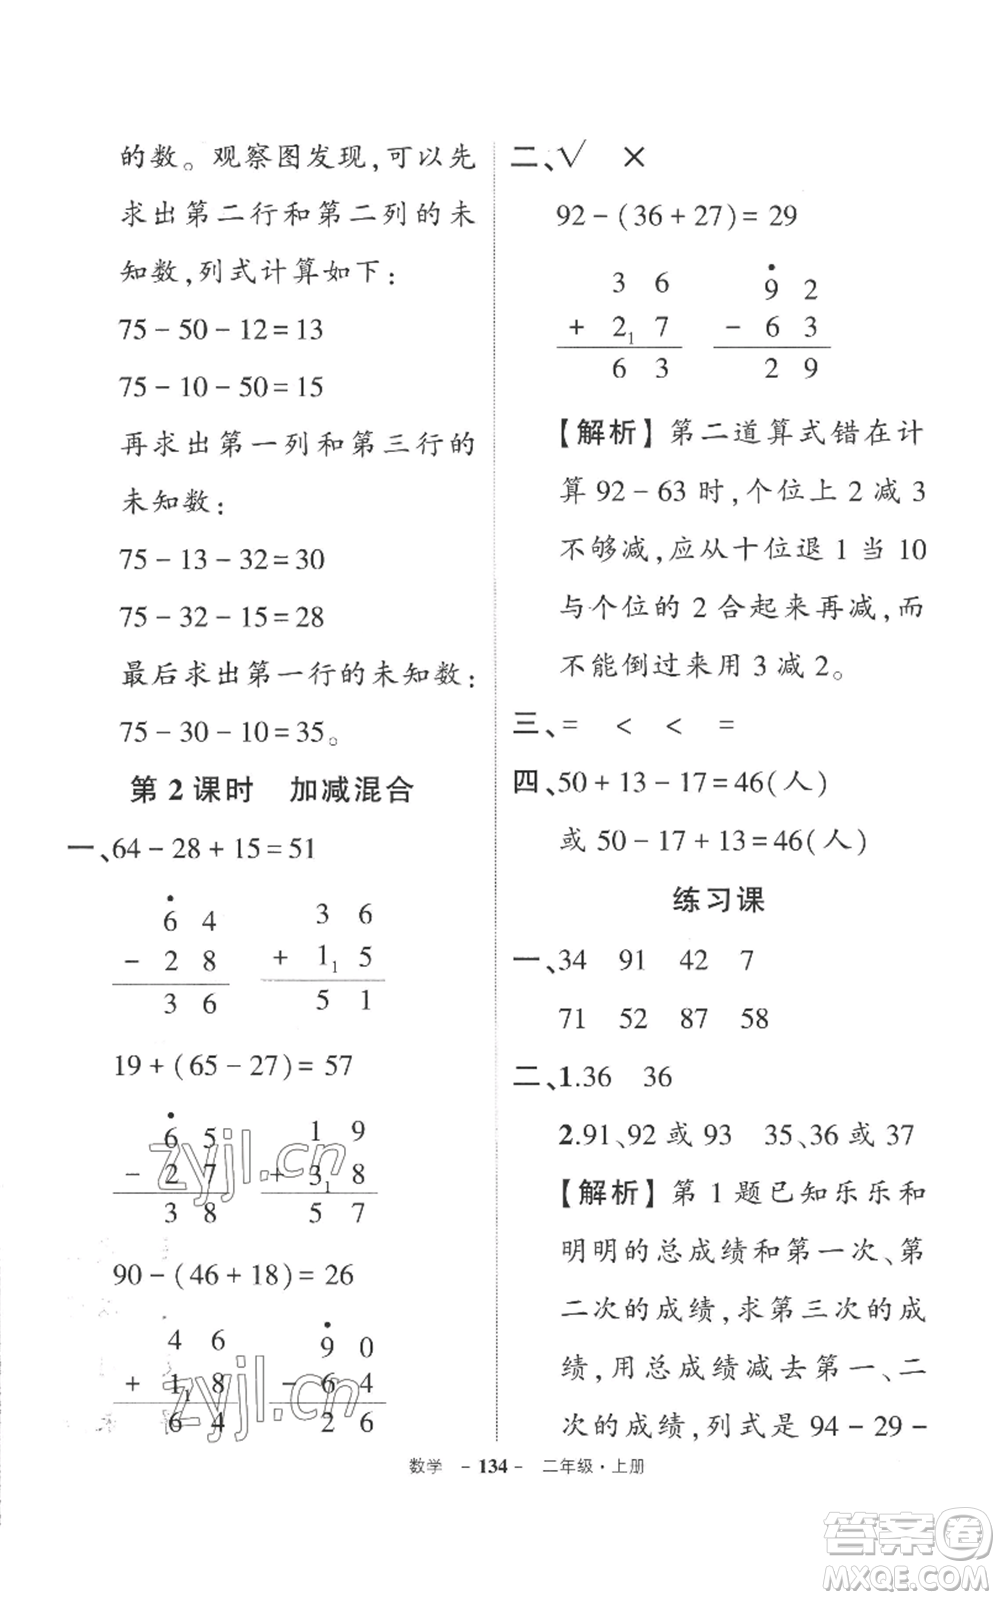 的数。观察图发现,可以先
求出第二行和第二列的未
知数,列式计算如下:
75-50-12=13
75-10-50=15
再求出第一列和第三行的
未知数:
75-13-32=30
75-32-15=28
最后求出第一行的未知数:
75-30-10=35。
第2课时 加减混合
一、64-28+15=51
6 4 3 6
- 2 8 + 1₁ 5
3 6 5 1
19+(65-27)=57
6 5 1 9
- 2 7 + 3₁ 8
3 8 5 7
90-(46+18)=26
4 6 9 0
+ 1₁ 8 - 6 4
6 4 2 6
二、√ ×
92-(36+27)=29
3 6 9 2
+ 2₁ 7 - 6 3
6 3 2 9
【解析】第二道算式错在计
算92-63时,个位上2减3
不够减,应从十位退1当10
与个位的2合起来再减,而
不能倒过来用3减2。
三、= < < =
四、50+13-17=46(人)
或50-17+13=46(人)
练习课
一、34 91 42 7
71 52 87 58
二、1.36 36
2.91、92或93 35、36或37
【解析】第1题已知乐乐和
明明的总成绩和第一次、第
二次的成绩,求第三次的成
绩,用总成绩减去第一、二
次的成绩,列式是94-29-
数学 -134- 二年级·上册
zyjl.cn
zyjl.cn
答案圈
MXQE.COM